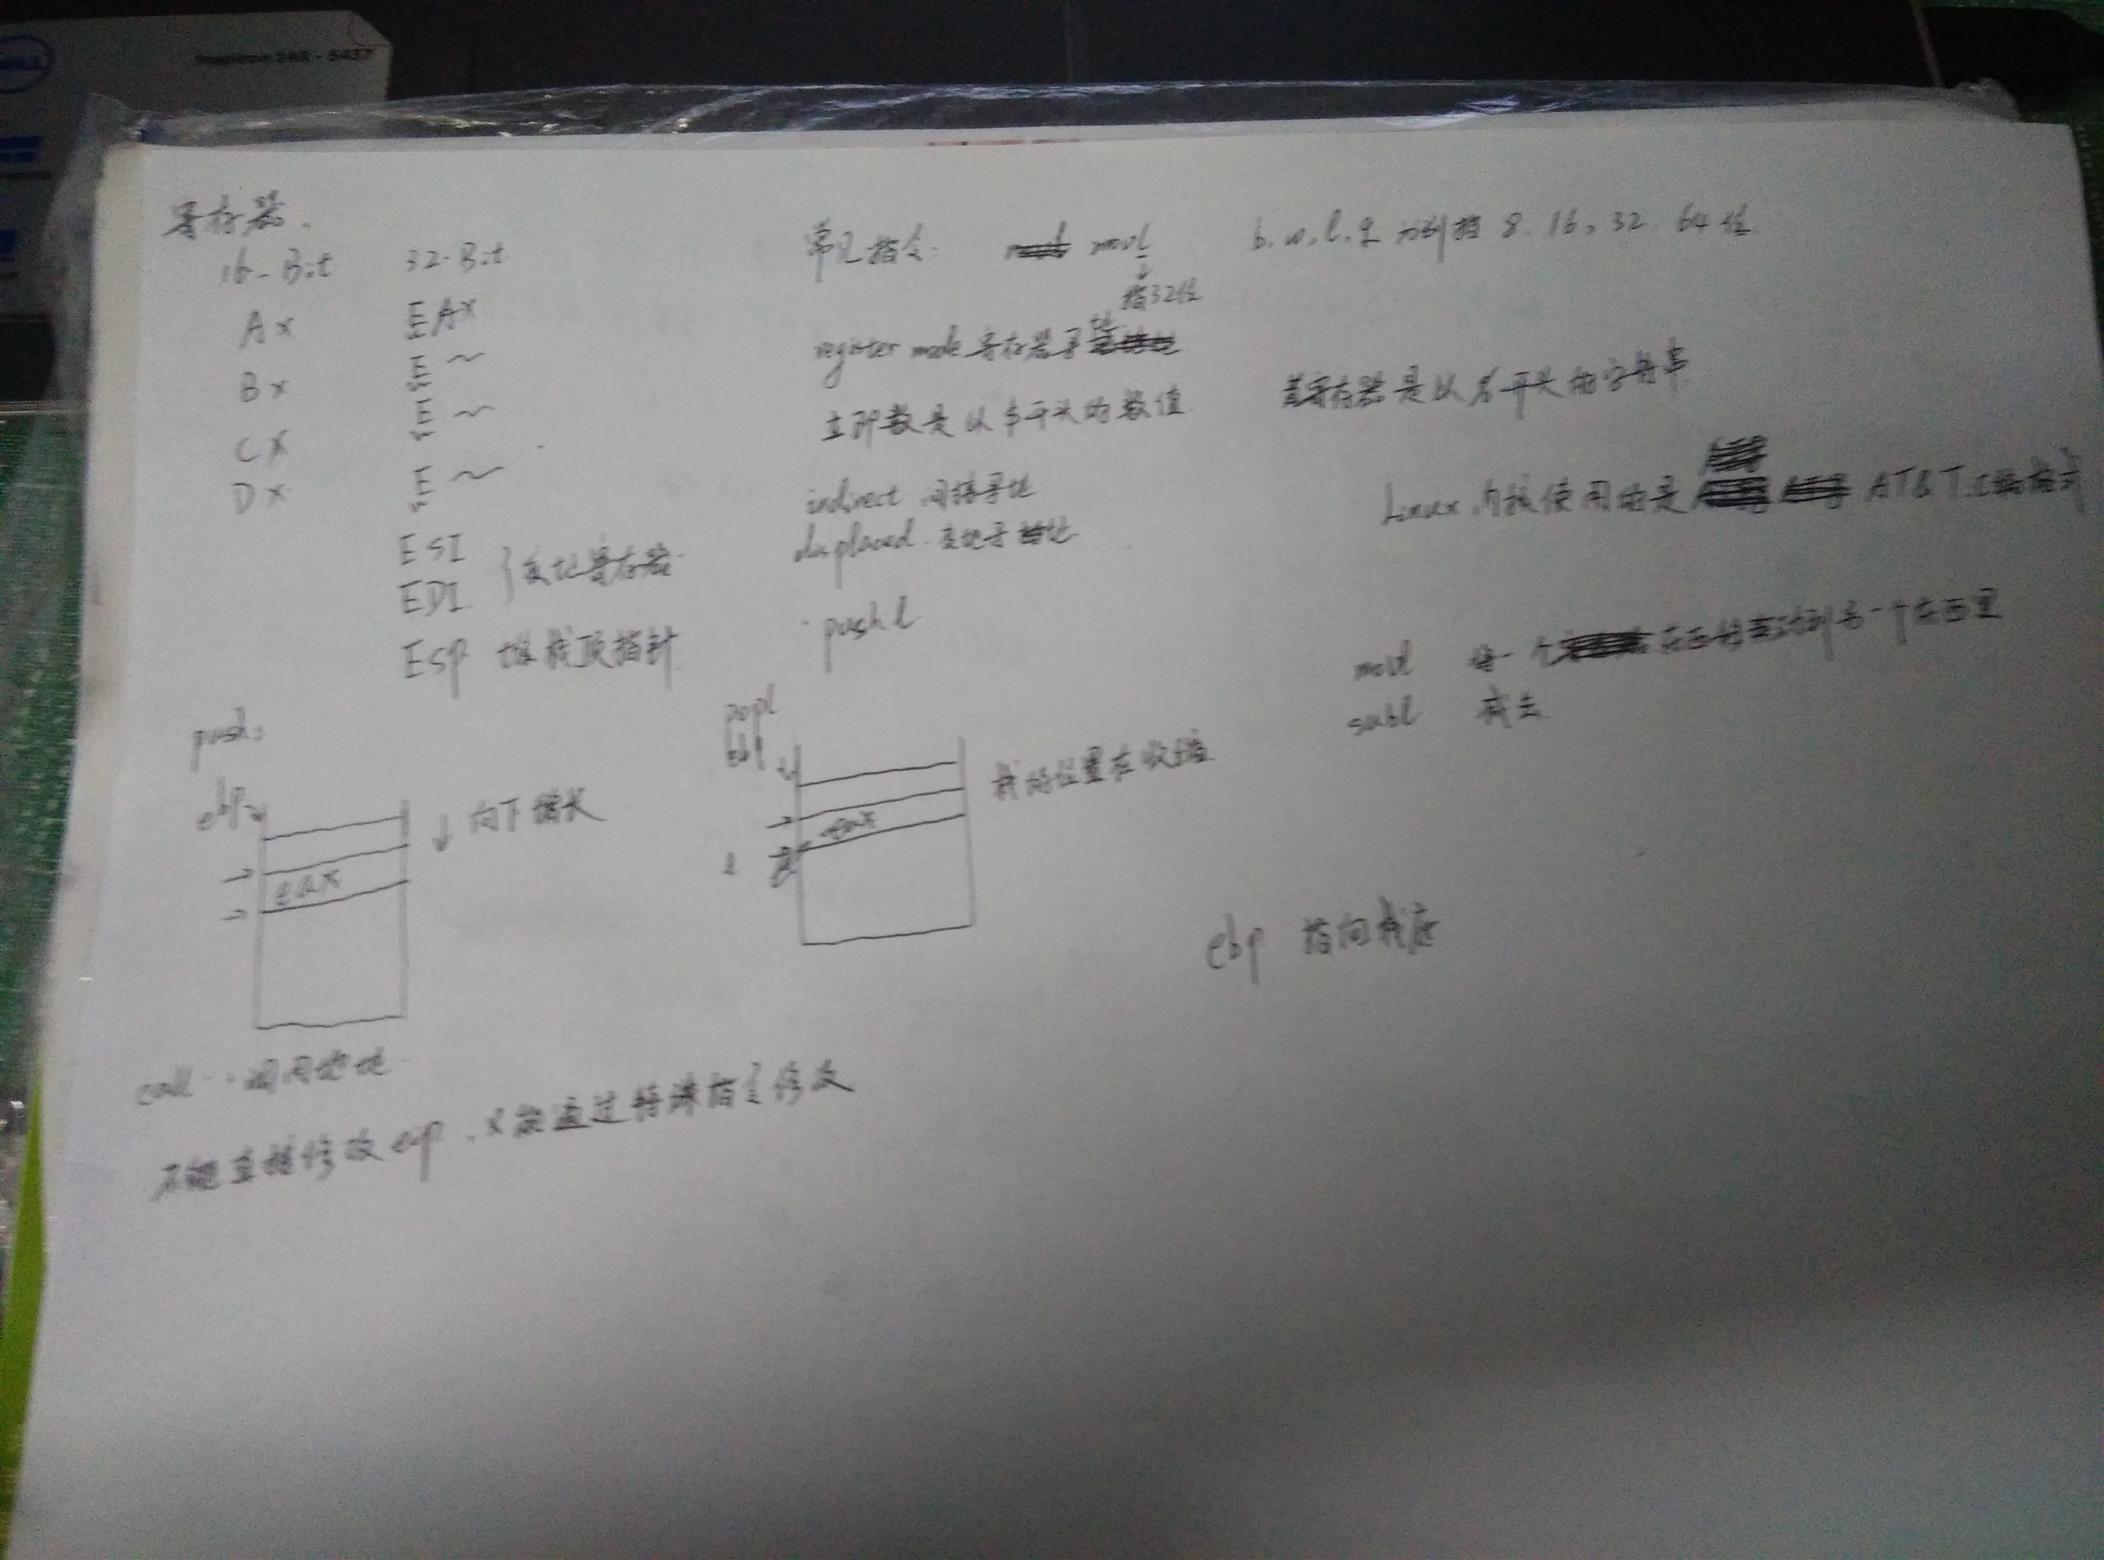 Inspiron 14R - 5437
寄存器.
16-Bit 32-Bit
AX EAX
BX E~
CX E~
DX E~
ESI
EDI } 变址寄存器
ESP 堆栈顶指针
常见指令: movl b.w.l.q 分别指 8.16.32.64位
↓
指32位
register mode 寄存器寻址
立即数是以$开头的数值 寄存器是以%开头的字符串
indirect 间接寻址
displaced 变址寻址
Linux 内核使用的是 AT&T 汇编格式
pushl
movl 将一个东西移动到另一个东西里
subl 减去
push:
ebp
↓ 向下增长
eax
popl
ebp
栈的位置在收缩
eax
ebp 指向栈底
call 调用地址
不能直接修改eip.只能通过特殊指令修改